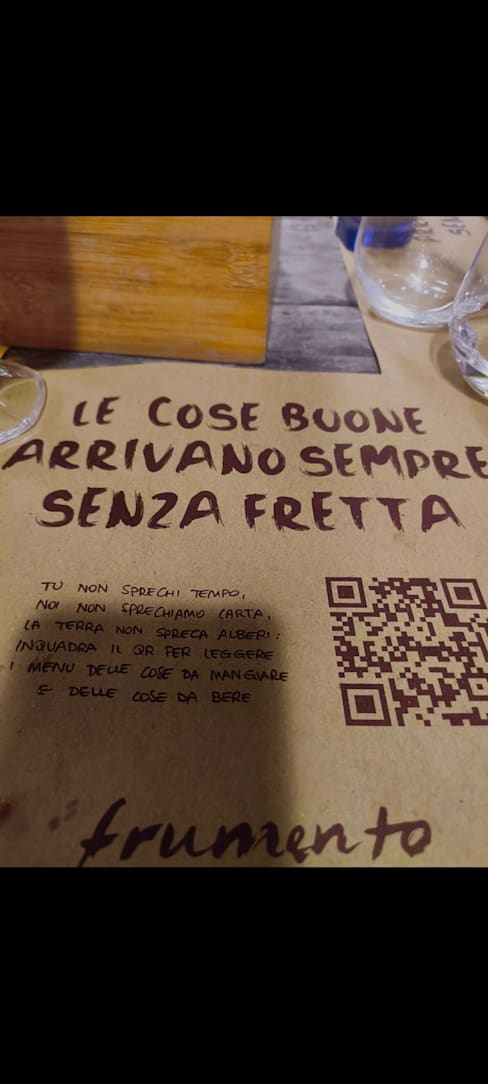 LE COSE BUONE
ARRIVANO SEMPRE
SENZA FRETTA
TU NON SPRECHI TEMPO,
NOI NON SPRECHIAMO CARTA,
LA TERRA NON SPRECA ALBERI:
INQUADRA IL QR PER LEGGERE
I MENU DELLE COSE DA MANGIARE
E DELLE COSE DA BERE
frumento